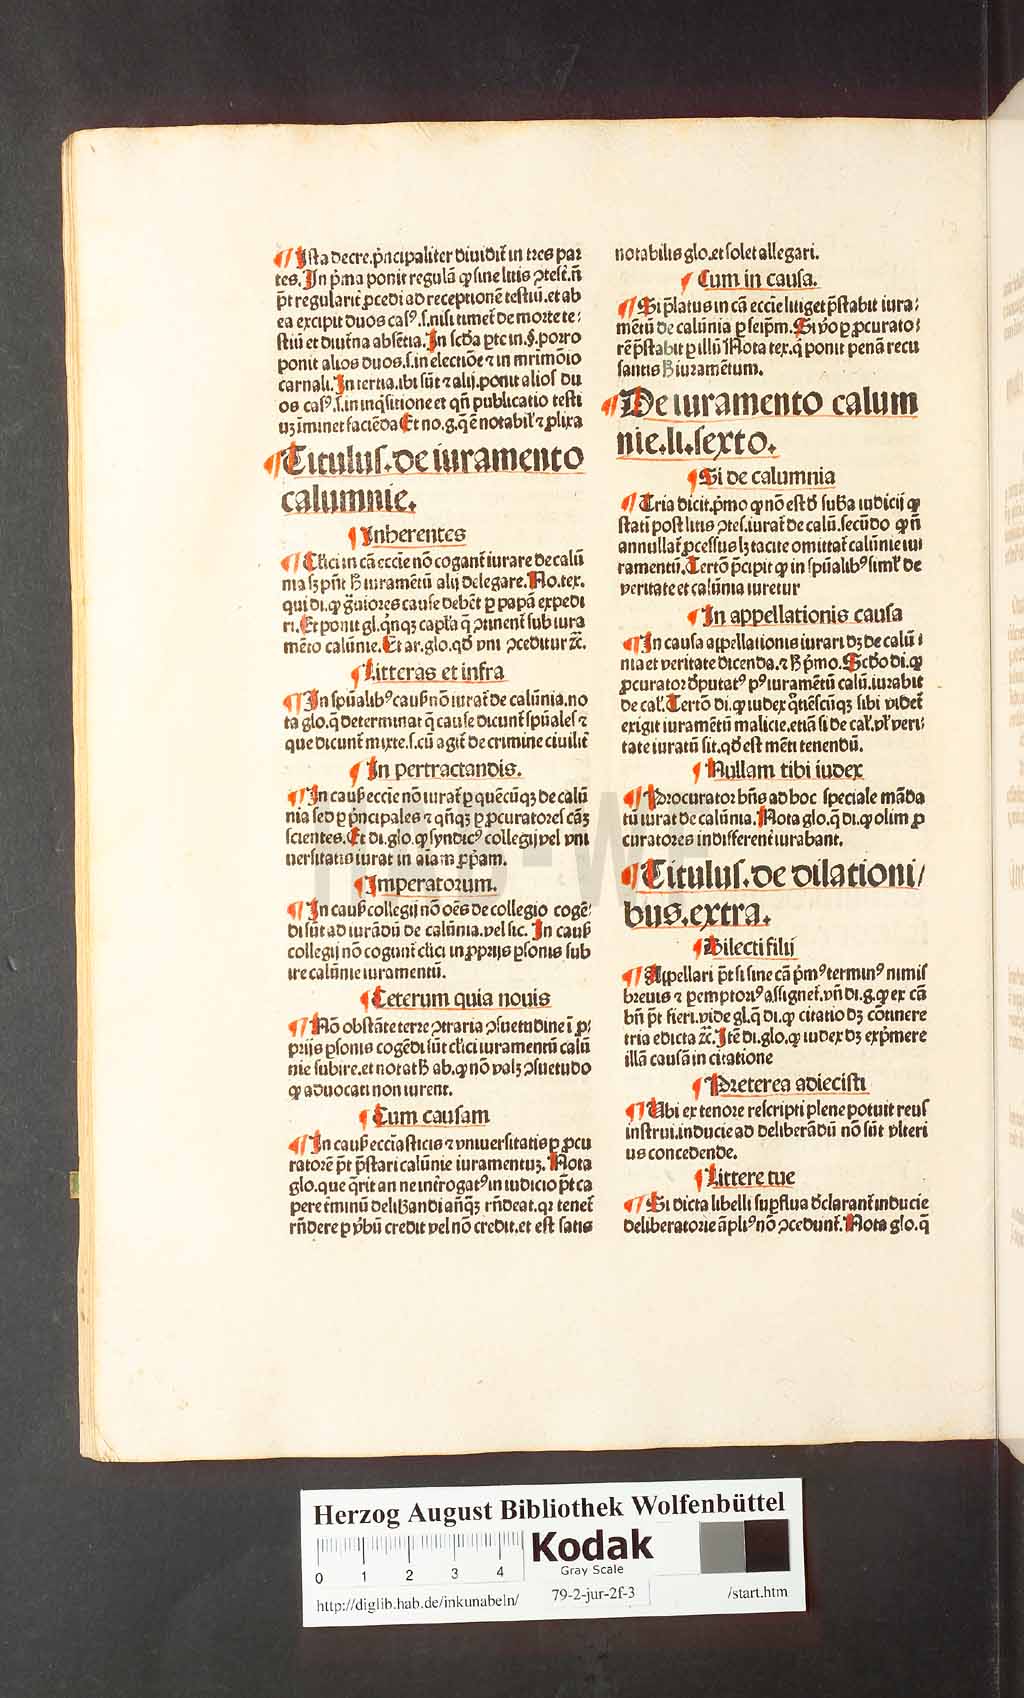 ¶ Ista decre.p̄ncipaliter diuidit̄ in tres par
tes. In p̄ma ponit regulā ꝙ sine litis ꝯtest.n̄
p̄t regularit̄ ꝓcedi ad receptionē testiū.et ab
ea excipit duos casꝰ.s.nisi timet̄ de morte te⸗
stiū et diut̄na absētia. In scd̄a ꝑte in.§.porro
ponit alios duos.s.in electiōe ⁊ in mr̄imōio
carnali. In tertia.ibi sūt ⁊ alij.ponit alios du
os casꝰ.s.in inq̄sitione et qn̄ publicatio testi
uꝫ īminet faciēda Et no.g.q̄ ē notabil' ⁊ ꝓlixa
¶ Titulus.de iuramento
calumnie.
¶ Inherentes
¶ Cl̄ici in cā eccīe nō cogant̄ iurare de calū
nia sꝫ pn̄t ħ iuramētū alij delegare. No.tex.
qui di.ꝙ gͣuiores cause debēt ꝑ papā expedi
ri. Et ponit gl.qͥnqꝫ capl'a q̄ ꝯtinent̄ sub iura
mēto calūnie. Et ar.glo.qd̄ vni ꝯceditur ⁊c̄.
¶ Litteras et infra
¶ In spūalibꝰ caus̄ nō iurat̄ de calūnia.no
ta glo.q̄ determinat q̄ cause dicunt̄ spūales ⁊
que dicunt̄ mixte.s.cū agit̄ de crimine ciuilit̄
¶ In pertractandis.
¶ In caus̄ eccīe nō iurat̄ ꝑ quēcūqꝫ de calū
nia sed ꝑ p̄ncipales ⁊ qn̄qꝫ ꝑ ꝓcuratores cāꝫ
scientes. Et di.glo.ꝙ syndicꝰ collegij vel vni
uersitatis iurat in aīam ꝓpͥam.
¶ Imperatorum.
¶ In caus̄ collegij nō oēs de collegio cogē⸗
di sūt ad iurādū de calūnia.vel sic. In caus̄
collegij nō cogunt̄ cl̄ici in ꝓprijs ꝑsonis sub
ire calūnie iuramentū.
¶ Ceterum quia nouis
¶ Nō obstāte terre ꝯtraria ꝯsuetudine ī ꝓ⸗
prijs ꝑsonis cogēdi sūt cl̄ici iuramentū calū
nie subire.et notat ħ ab.ꝙ nō valꝫ ꝯsuetudo
ꝙ aduocati non iurent.
¶ Cum causam
¶ In caus̄ ecclīasticis ⁊ vniuersitatis ꝑ ꝓcu
ratorē p̄t p̄stari calūnie iuramentuꝫ. Nota
glo.que q̄rit an ne int̄rogatꝰ in iudicio p̄t ca
pere t̄minū delib̄andi anͣqꝫ rn̄deat.qr tenet̄
rn̄dere ꝑ ꝟbū credit vel nō credit.et est satis
notabilis glo.et solet allegari.
¶ Cum in causa.
¶ Si p̄latus in cā eccīe litiget p̄stabit iura⸗
mētū de calūnia ꝑ seip̄m. Si ꝟo ꝑ ꝓcurato⸗
rē p̄stabit ꝑ illū Nota tex.q̄ ponit penā recu
santis ħ iuramētum.
¶ De iuramento calum
nie.li.sexto.
¶ Si de calumnia
¶ Tria dicit.p̄mo ꝙ nō est d̄ sub̄a iudicij ꝙ
stati post litis ꝯtes.iurat̄ de calū.secūdo ꝙ n̄
annullat̄ ꝓcessus lꝫ tacite omittat̄ calūnie iu
ramentū. Tertō p̄cipit ꝙ in spūalibꝰ siml' de
veritate et calūnia iuretur
¶ In appellationis causa
¶ In causa appellationis iurari dꝫ de calū ⸗
nia et veritate dicenda.⁊ ħ p̄mo. Scd̄o di.ꝙ
ꝓcurator d̄putatꝰ pꝰ iuramētū calū.iurabit
de cal'. Tertō di.ꝙ iudex q̄tiēscūqꝫ sibi videt̄
exigit iuramētū malicie.etiā si de cal'.vl' veri⸗
tate iuratū sit.qd̄ est mēti tenendū.
¶ Nullam tibi iudex
¶ Procurator hn̄s ad hoc speciale māda
tū iurat de calūnia. Nota glo.q̄ di.ꝙ olim ꝓ
curatores indifferent̄ iurabant.
¶ Titulus.de dilationi/
bus.extra.
¶ Dilecti filij
¶ Appellari p̄t si sine cā pͥmꝰ terminꝰ nimis
breuis ⁊ ꝑemptoriꝰ assignet̄.vn̄ di.g.ꝙ ex cā
bn̄ p̄t fieri.vide gl.q̄ di.ꝙ citatio dꝫ cōtinere
tria edicta ⁊c̄. Itē di.glo.ꝙ iudex dꝫ exp̄mere
illā causā in citatione
¶ Preterea adiecisti
¶ Ubi ex tenore rescripti plene potuit reus
instrui.inducie ad deliberādū nō sūt vlteri
us concedende.
¶ Littere tue
¶ Si dicta libelli suꝑflua d̄clarant̄ inducie
deliberatorie āpliꝰ nō ꝯcedunt̄. Nota glo.q̄
HAB-WF
Herzog August Bibliothek Wolfenbüttel
0 1 2 3 4
Kodak
Gray Scale
http://diglib.hab.de/inkunabeln/ 79-2-jur-2f-3 /start.htm